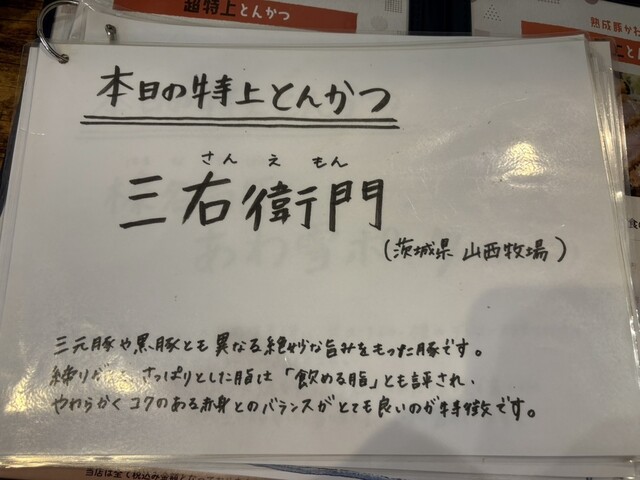 超特上とんかつ
本日の特上とんかつ
さん え もん
三右衛門
(茨城県 山西牧場)
三元豚や黒豚とも異なる絶妙な旨みをもった豚です。
さっぱりとした脂は「飲める脂」とも評され、
やわらかくコクのある赤身とのバランスがとても良いのが特徴です。